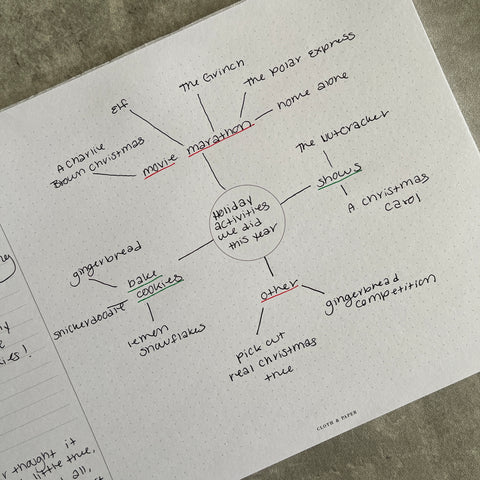 The Grinch
The Polar Express
Elf
home alone
A Charlie
Brown Christmas
movie marathon
The Nutcracker
shows
A christmas
carol
Holiday
activities
we did
this year
gingerbread
bake
cookies
snickerdoodle
lemon
snowflakes
other
gingerbread
competition
pick out
real christmas
tree
CLOTH & PAPER
thought it
little tree,
all,